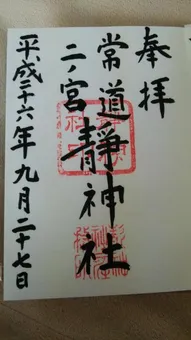 奉拝
常道
二ノ宮
靜神社
平成二十六年九月二十七日